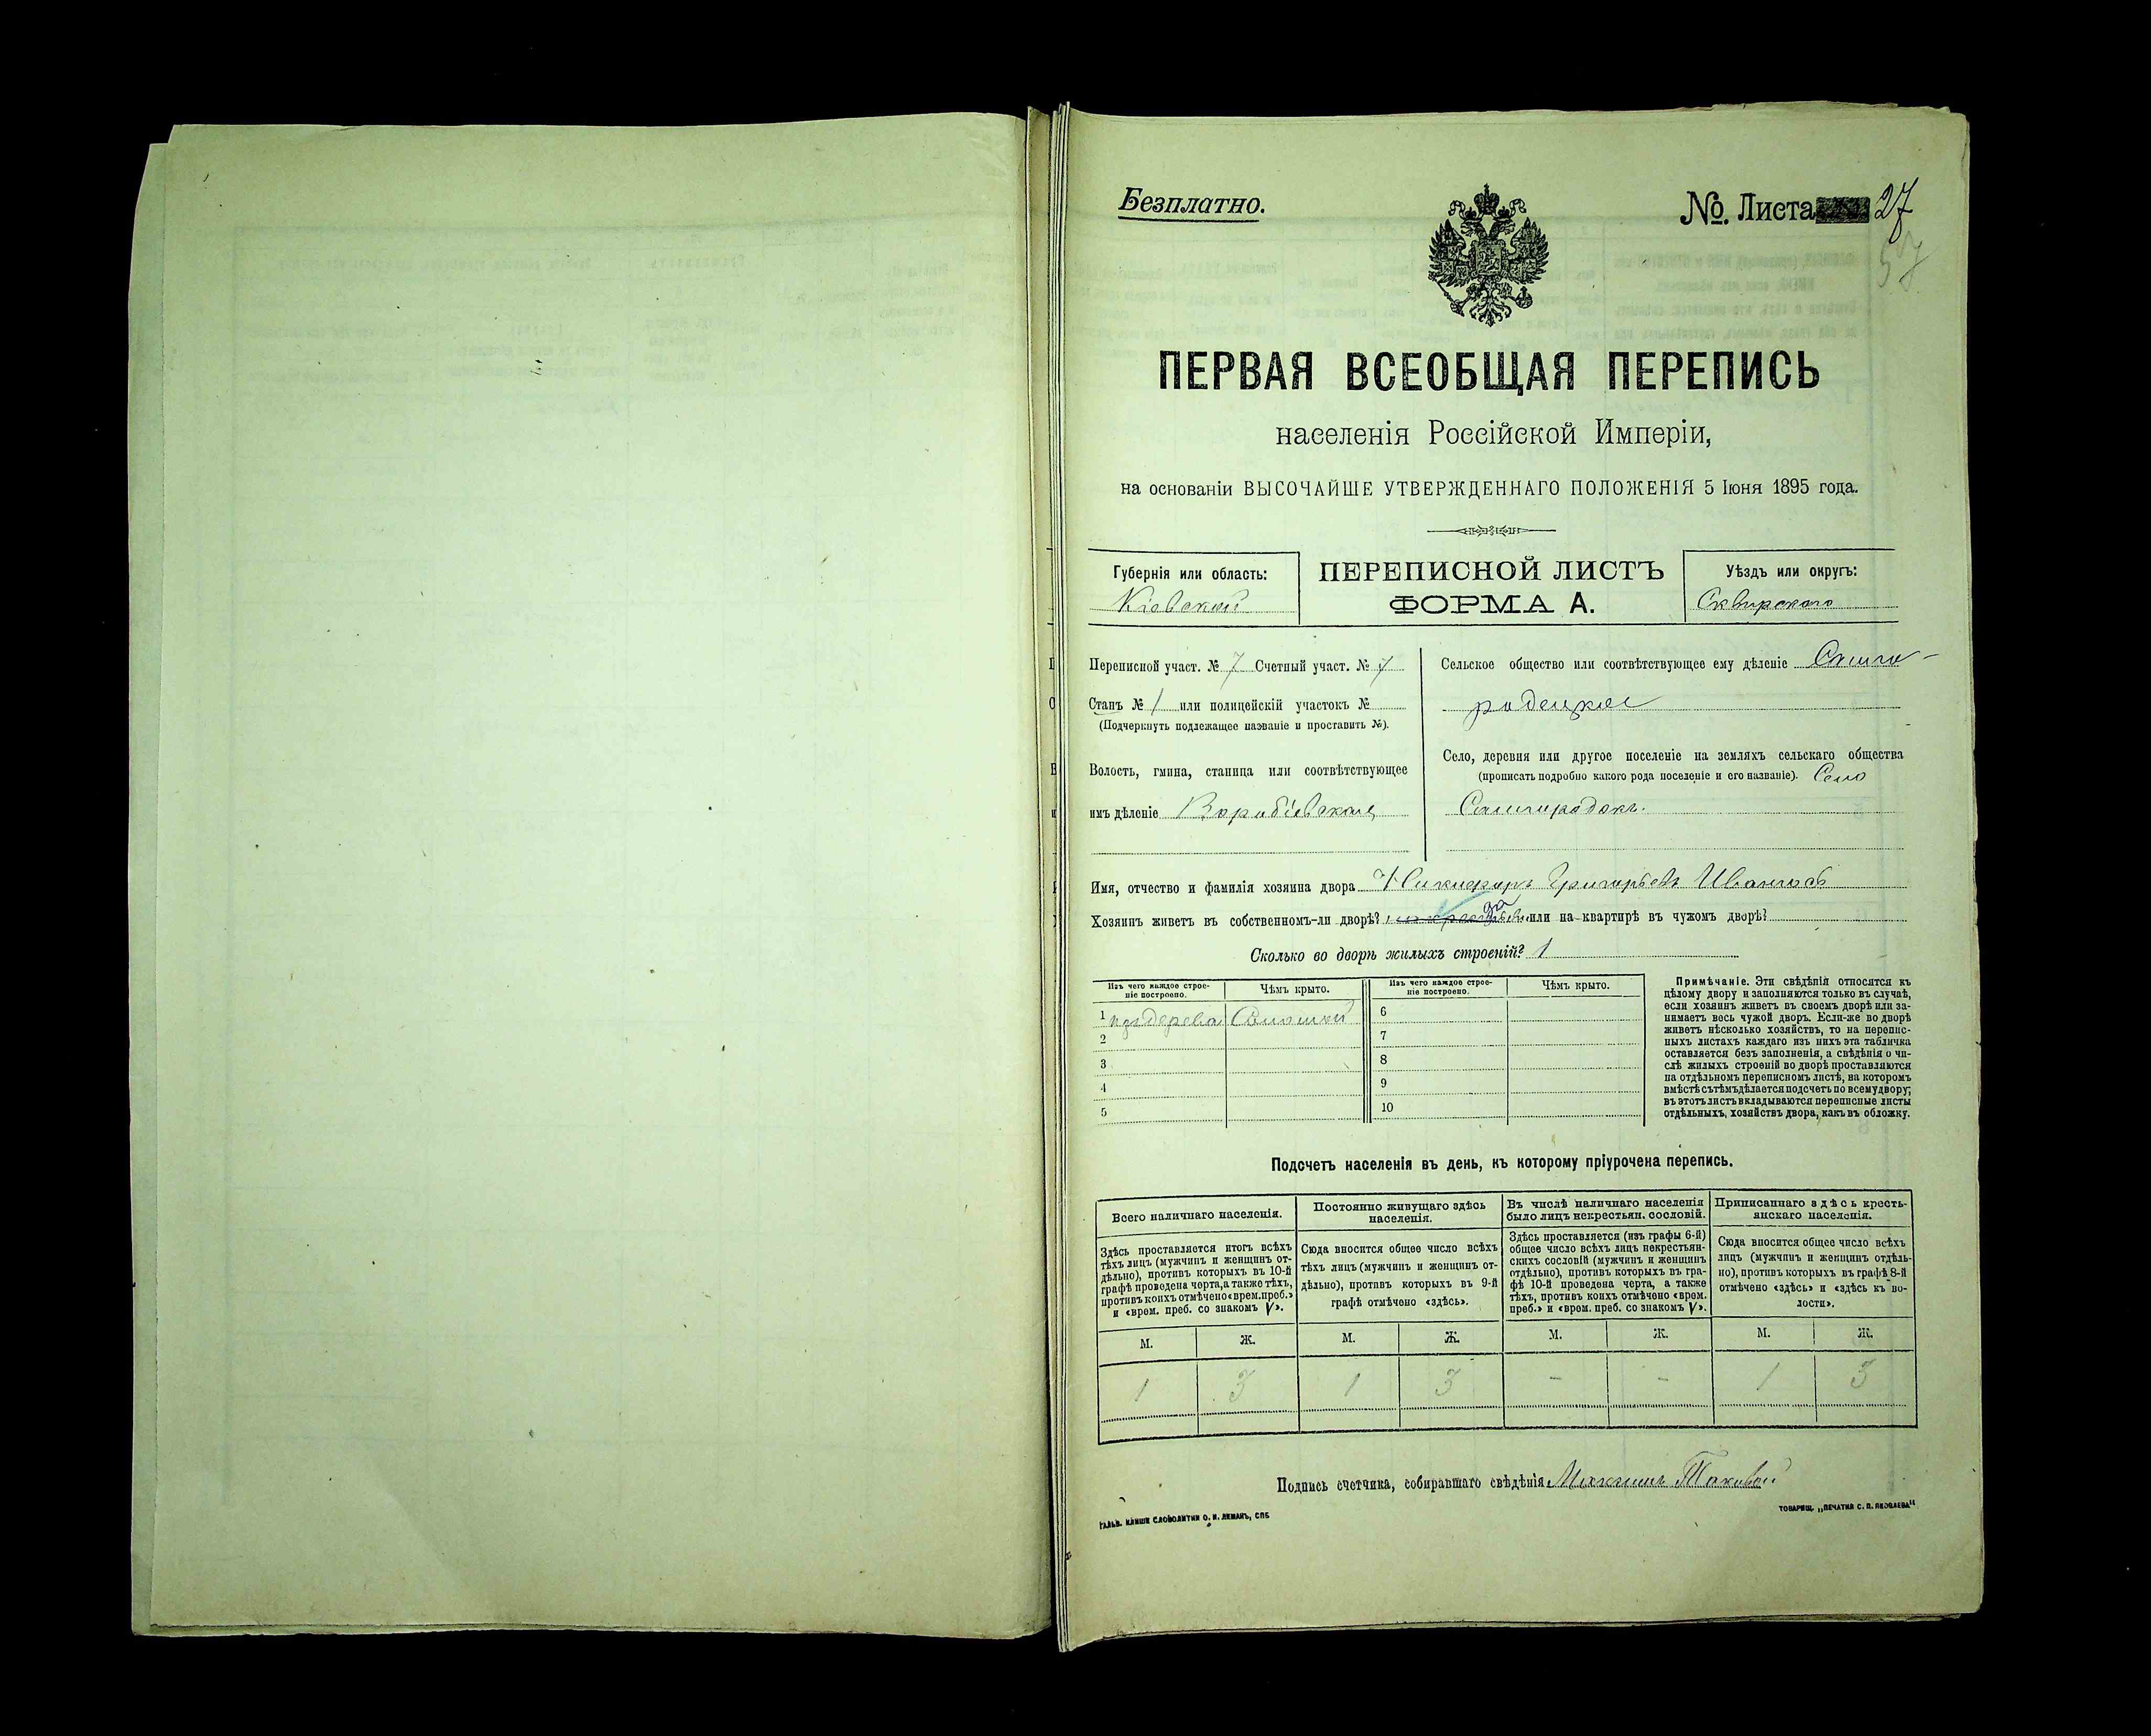 Безплатно.
№. Листа 27
57
ПЕРВАЯ ВСЕОБЩАЯ ПЕРЕПИСЬ
населенія Россійской Имперіи,
на основаніи ВЫСОЧАЙШЕ УТВЕРЖДЕННАГО ПОЛОЖЕНІЯ 5 Іюня 1895 года.
Губернія или область:
Кіевской
ПЕРЕПИСНОЙ ЛИСТЪ
ФОРМА А.
Уѣздъ или округъ:
Сквирскаго
Переписной участ. № 7 Счетный участ. № 7
Станъ № 1 или полицейскій участокъ №
(Подчеркнуть подлежащее названіе и проставить №).
Волость, гмина, станица или соотвѣтствующее
имъ дѣленіе
Сельское общество или соотвѣтствующее ему дѣленіе
Село, деревня или другое поселеніе на земляхъ сельскаго общества
(прописать подробно какого рода поселеніе и его названіе). Село
Самгородокъ.
Имя, отчество и фамилія хозяина двора Никифоръ Григорьевъ
Хозяинъ живетъ въ собственномъ-ли дворѣ? да или на квартирѣ въ чужомъ дворѣ?
Сколько во дворѣ жилыхъ строеній? 1
Изъ чего каждое строе-
ніе построено.
Чѣмъ крыто.
Изъ чего каждое строе-
ніе построено.
Чѣмъ крыто.
1 изъ дерева Соломой 6
2 7
3 8
4 9
5 10
Примѣчаніе. Эти свѣдѣнія относятся къ
цѣлому двору и заполняются только въ случаѣ,
если хозяинъ живетъ въ своемъ дворѣ или за-
нимаетъ весь чужой дворъ. Если-же во дворѣ
живетъ нѣсколько хозяйствъ, то на перепис-
ныхъ листахъ каждаго изъ нихъ эта табличка
оставляется безъ заполненія, а свѣдѣнія о чи-
слѣ жилыхъ строеній во дворѣ проставляются
на отдѣльномъ переписномъ листѣ, на которомъ
вмѣстѣ съ тѣмъ дѣлается подсчетъ по всему двору;
въ этотъ листъ вкладываются переписные листы
отдѣльныхъ, хозяйствъ двора, какъ въ обложку.
Подсчетъ населенія въ день, къ которому пріурочена перепись.
Всего наличнаго населенія.
Здѣсь проставляется итогъ всѣхъ
тѣхъ лицъ (мужчинъ и женщинъ от-
дѣльно), противъ которыхъ въ 10-й
графѣ проведена черта, а также тѣхъ,
противъ коихъ отмѣчено «врем. преб.»
и «врем. преб. со знакомъ V».
Постоянно живущаго здѣсь
населенія.
Сюда вносится общее число всѣхъ
тѣхъ лицъ (мужчинъ и женщинъ от-
дѣльно), противъ которыхъ въ 9-й
графѣ отмѣчено «здѣсь».
Въ числѣ наличнаго населенія
было лицъ некрестьян. сословій.
Здѣсь проставляется (изъ графы 6-й)
общее число всѣхъ лицъ некрестьян-
скихъ сословій (мужчинъ и женщинъ
отдѣльно), противъ которыхъ въ гра-
фѣ 10-й проведена черта, а также
тѣхъ, противъ коихъ отмѣчено «врем.
преб.» и «врем. преб. со знакомъ V».
Приписаннаго здѣсь кресть-
янскаго населенія.
Сюда вносится общее число всѣхъ
лицъ (мужчинъ и женщинъ отдѣль-
но), противъ которыхъ въ графѣ 8-й
отмѣчено «здѣсь» и «здѣсь къ во-
лости».
М. Ж. М. Ж. М. Ж. М. Ж.
1 3 1 3 - - 1 3
Подпись счетчика, собиравшаго свѣдѣнія
ГАЛЬВ. КЛИШЕ СЛОВОЛИТНИ О. И. ЛЕМАНЪ, СПБ
ТОВАРИЩ. „ПЕЧАТНЯ С. П. ЯКОВЛЕВА"